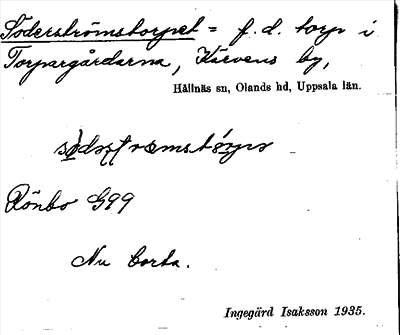 Söderströmstorpet = f. d. torp i
Torpargårdarna, Kärvens by,
Hållnäs sn, Olands hd, Uppsala län.
Rönbo G99
Nu borta.
Ingegärd Isaksson 1935.